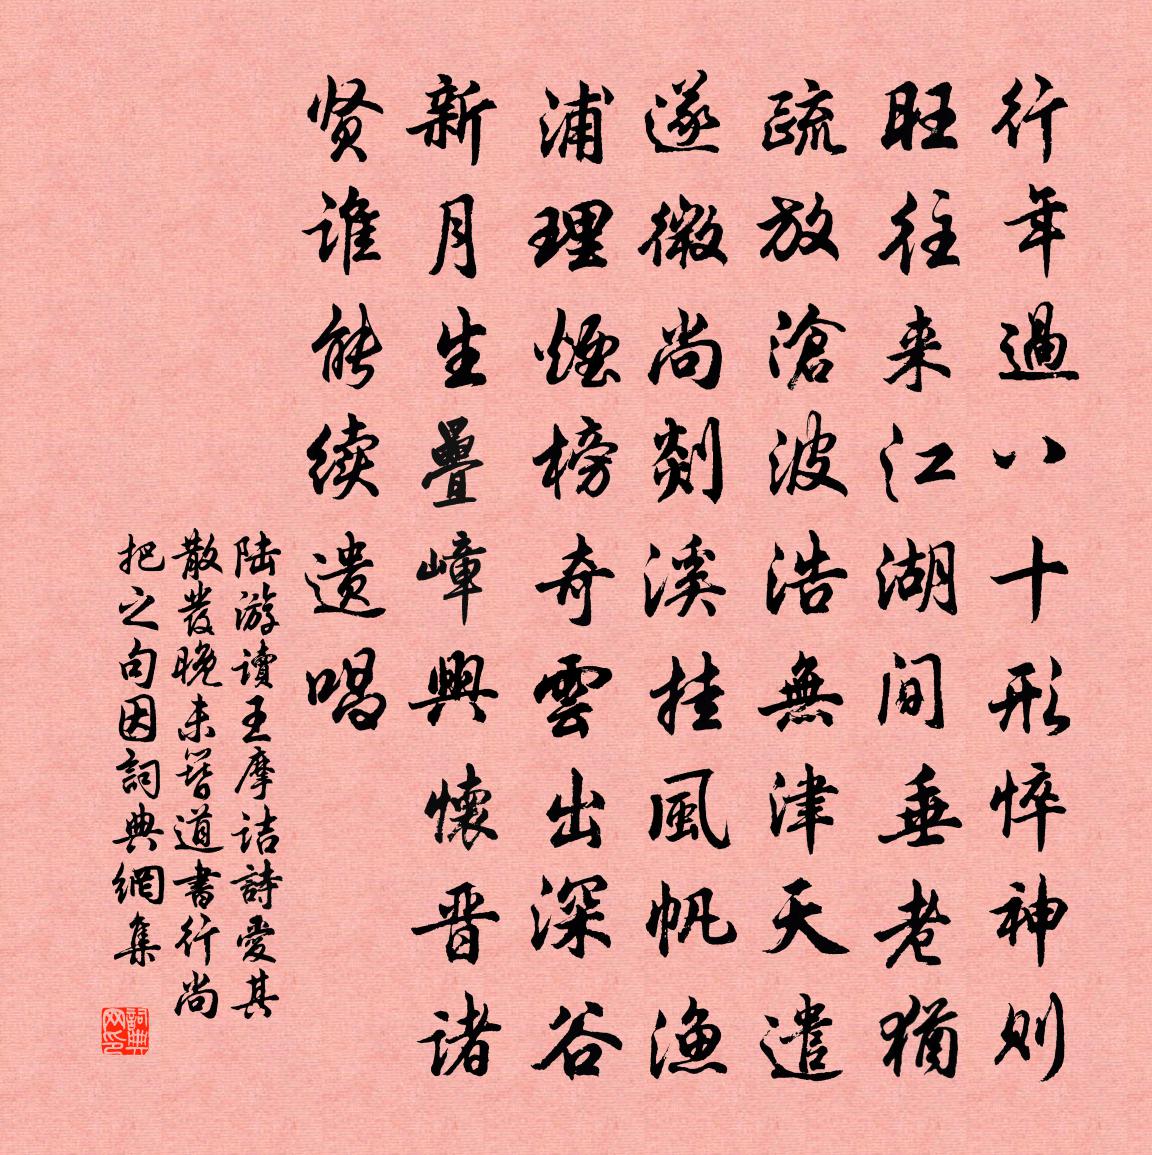 行年過八十形悴神则
旺往来江湖间垂老猶
疏放滄波浩無津天遣
遂微尚剡溪挂風帆漁
浦理煙榜奇雲出深谷
新月生疊嶂興懷晋诸
贤谁能续遗唱
陆游讀王摩诘詩愛其
散發晚未簪道書行尚
把之句因詞典網集
詞典网印